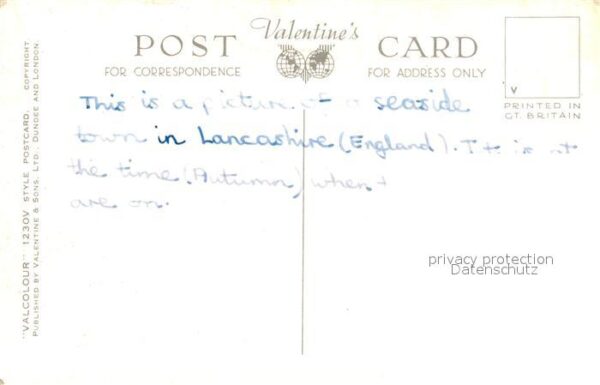 Valentine's
POST CARD
FOR CORRESPONDENCE FOR ADDRESS ONLY
V
PRINTED IN
GT. BRITAIN
"VALCOLOUR" 1230V STYLE POSTCARD. COPYRIGHT.
PUBLISHED BY VALENTINE & SONS, LTD., DUNDEE AND LONDON.
This is a picture of a seaside
town in Lancashire (England). It is at
the time (Autumn) when
are on.
privacy protection
Datenschutz